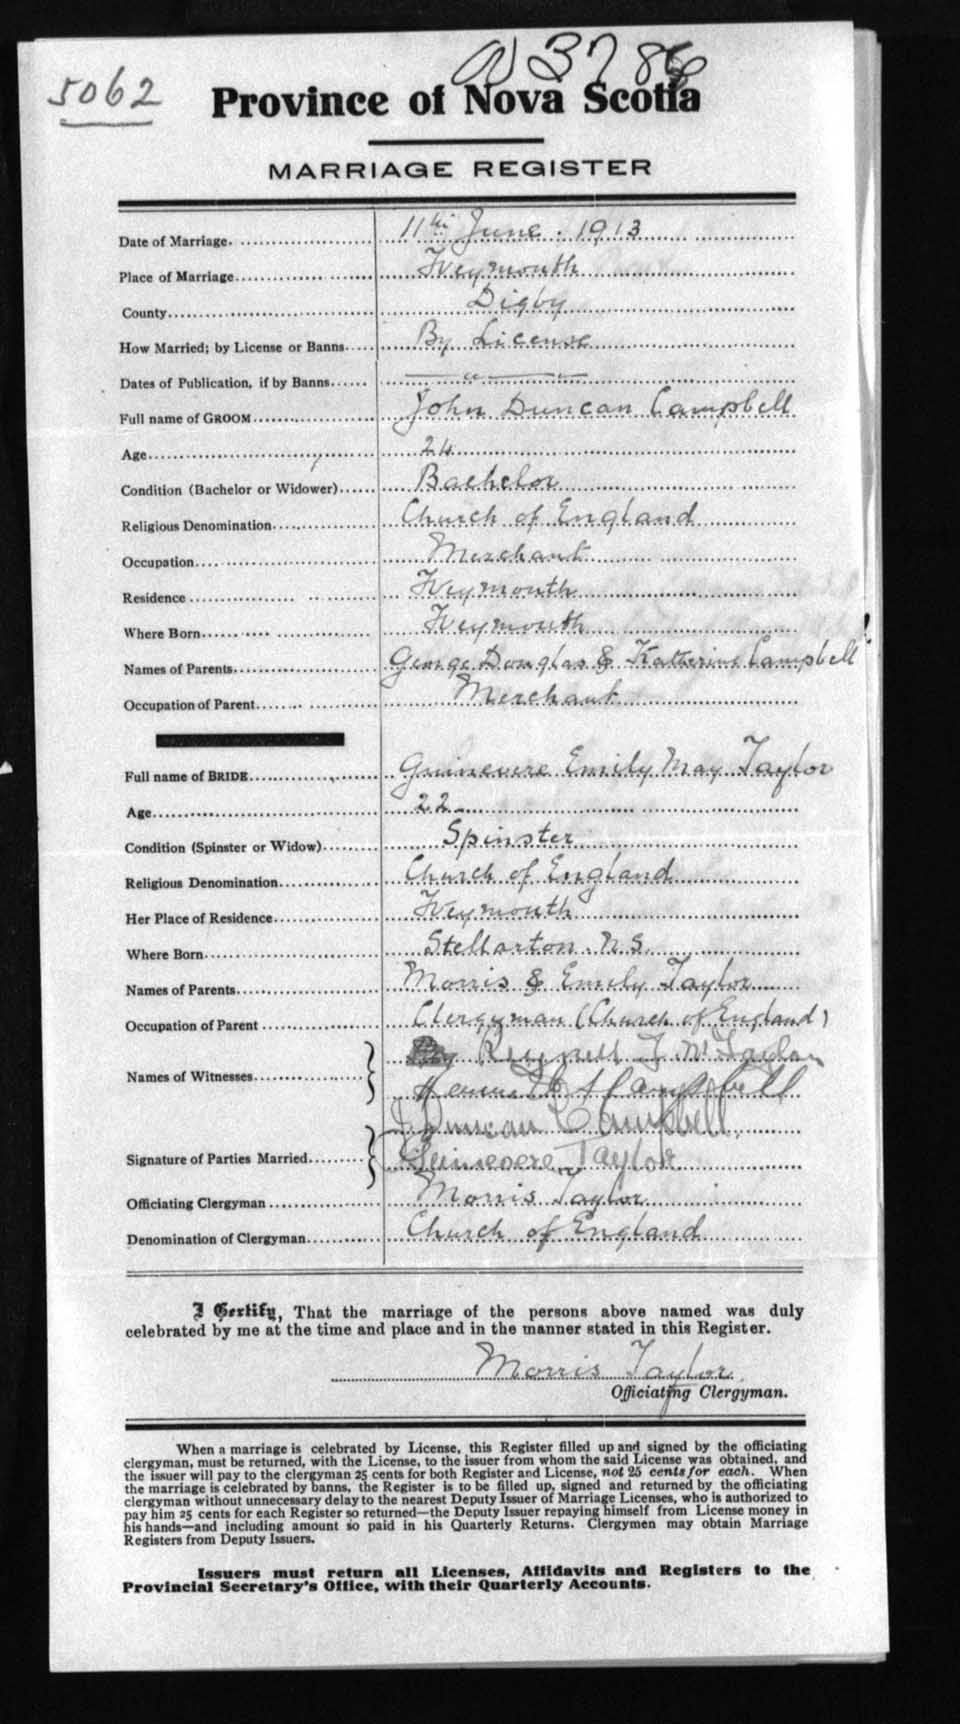 5062
Province of Nova Scotia
MARRIAGE REGISTER
Date of Marriage. 11th June. 1913
Place of Marriage Weymouth
County Digby
How Married; by License or Banns By License
Dates of Publication, if by Banns
Full name of GROOM John Duncan Campbell
Age 24
Condition (Bachelor or Widower) Bachelor
Religious Denomination Church of England
Occupation Merchant
Residence Weymouth
Where Born Weymouth
Names of Parents George Douglas & Katherine Campbell
Occupation of Parent Merchant
Full name of BRIDE Guinevere Emily May Taylor
Age 22
Condition (Spinster or Widow) Spinster
Religious Denomination Church of England
Her Place of Residence Weymouth
Where Born Stellarton N.S.
Names of Parents Morris & Emily Taylor
Occupation of Parent Clergyman (Church of England)
Names of Witnesses Taylor
Campbell
J Duncan Campbell.
Signature of Parties Married Guinevere Taylor
Officiating Clergyman Morris Taylor
Denomination of Clergyman Church of England
I Certify, That the marriage of the persons above named was duly
celebrated by me at the time and place and in the manner stated in this Register.
Morris Taylor
Officiating Clergyman.
When a marriage is celebrated by License, this Register filled up and signed by the officiating
clergyman, must be returned, with the License, to the issuer from whom the said License was obtained, and
the issuer will pay to the clergyman 25 cents for both Register and License, not 25 cents for each. When
the marriage is celebrated by banns, the Register is to be filled up, signed and returned by the officiating
clergyman without unnecessary delay to the nearest Deputy Issuer of Marriage Licenses, who is authorized to
pay him 25 cents for each Register so returned—the Deputy Issuer repaying himself from License money in
his hands—and including amount so paid in his Quarterly Returns. Clergymen may obtain Marriage
Registers from Deputy Issuers.
Issuers must return all Licenses, Affidavits and Registers to the
Provincial Secretary's Office, with their Quarterly Accounts.